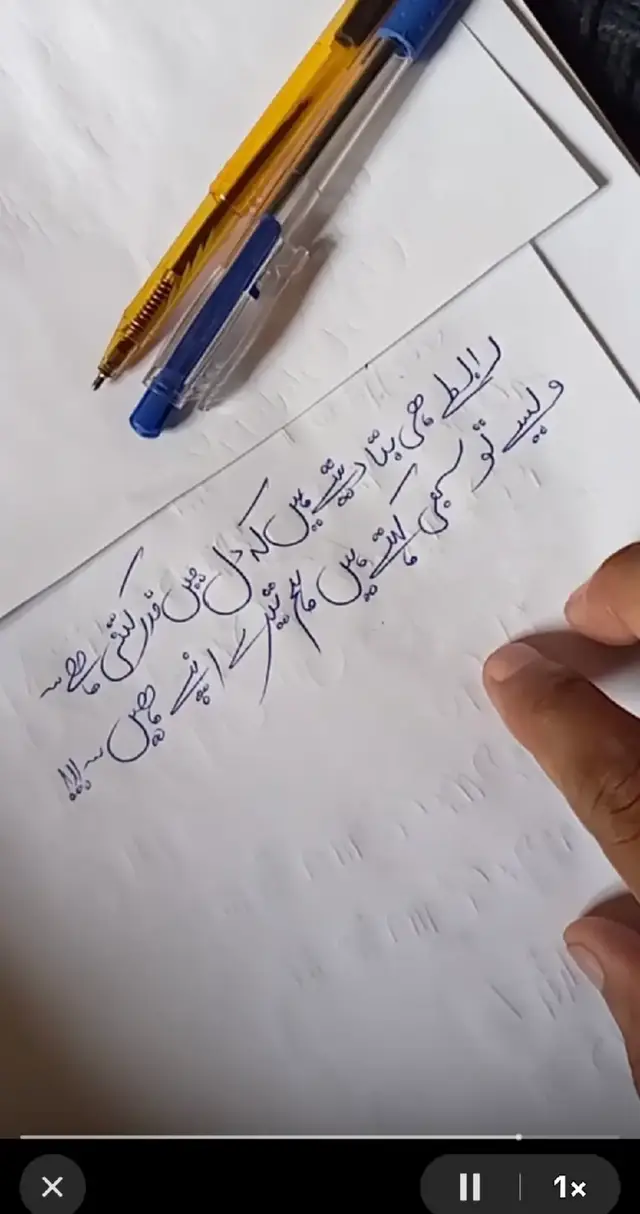 رابطے ہی بتا دیتے ہیں کہ دل میں قدر کتنی ہے ~
ویسے تو سبھی کہتے ہیں ہم تیرے اپنے ہیں ~!!!
1x